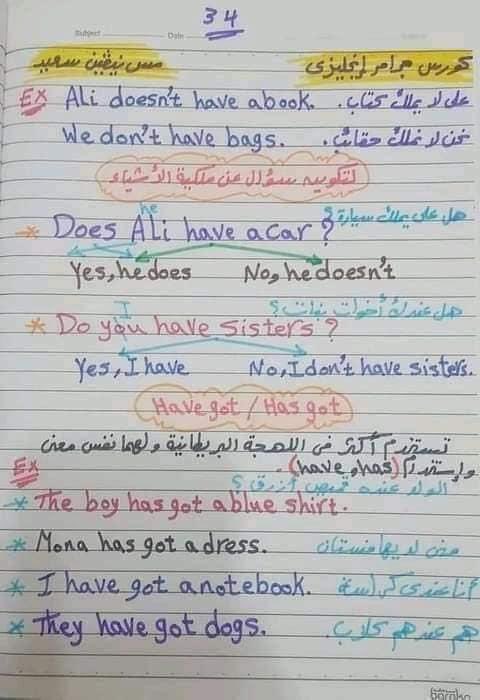 34
Subject Date
كورس جرامر إنجليزى مس نيڤين سعيد
EX Ali doesn't have a book. على لا يملك كتاب.
We don't have bags. نحن لا نملك حقائب.
لتكوين سؤال عن ملكية الأشياء
he هل على يملك سيارة؟
* Does Ali have a car?
Yes, he does No, he doesn't
I هل عندك أخوات بنات؟
* Do you have sisters?
Yes, I have No, I don't have sisters.
Have got / Has got
تستخدم أكثر فى اللهجة البريطانية ولهما نفس معنى
وإستخدام (have, has).
EX الولد عنده قميص أزرق؟
* The boy has got a blue shirt.
* Mona has got a dress. منى لديها فستان
* I have got a notebook. أنا عندى كراسة
* They have got dogs. هم عندهم كلاب.